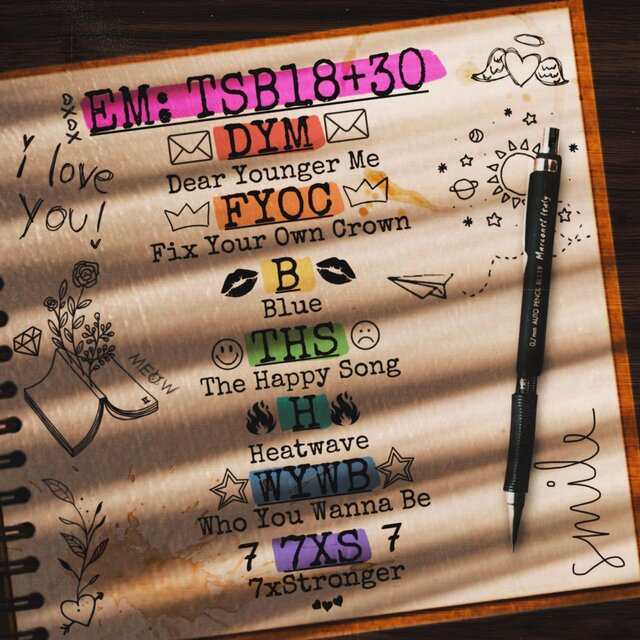 EM: TSB18+30
xoxo
i love
you!
DYM
Dear Younger Me
FYOC
Fix Your Own Crown
B
Blue
THS
The Happy Song
MEOW
H
Heatwave
WYWB
Who You Wanna Be
7 7XS 7
7xStronger
Marconti Italy
0.7mm AUTO PENCIL
smile